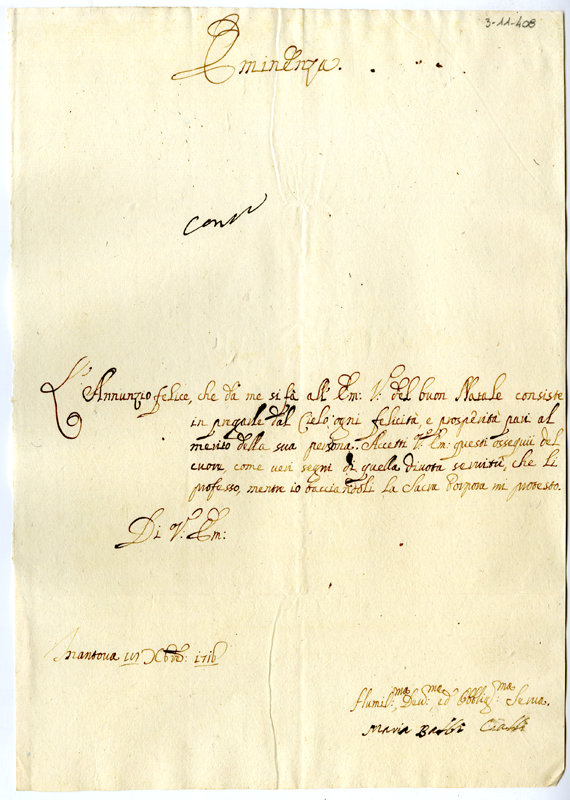 3-11-408
Eminenza.
L'Annunzio felice, che dà me si fà all' Em: V: del buon Natale consiste
in pregarle dal Cielo ogni felicità, e prosperità pari al
merito della sua persona. Accetti V: Em: questi ossequii del
cuore come veri segni di quella divota servitù, che li
professo, mentre io bacciandoli la Sacra Porpora mi protesto.
Di V: Em:
Mantova Xbre: 1716
Humil:ma Dev:ma, ed Obblig:ma Serva.
Maria